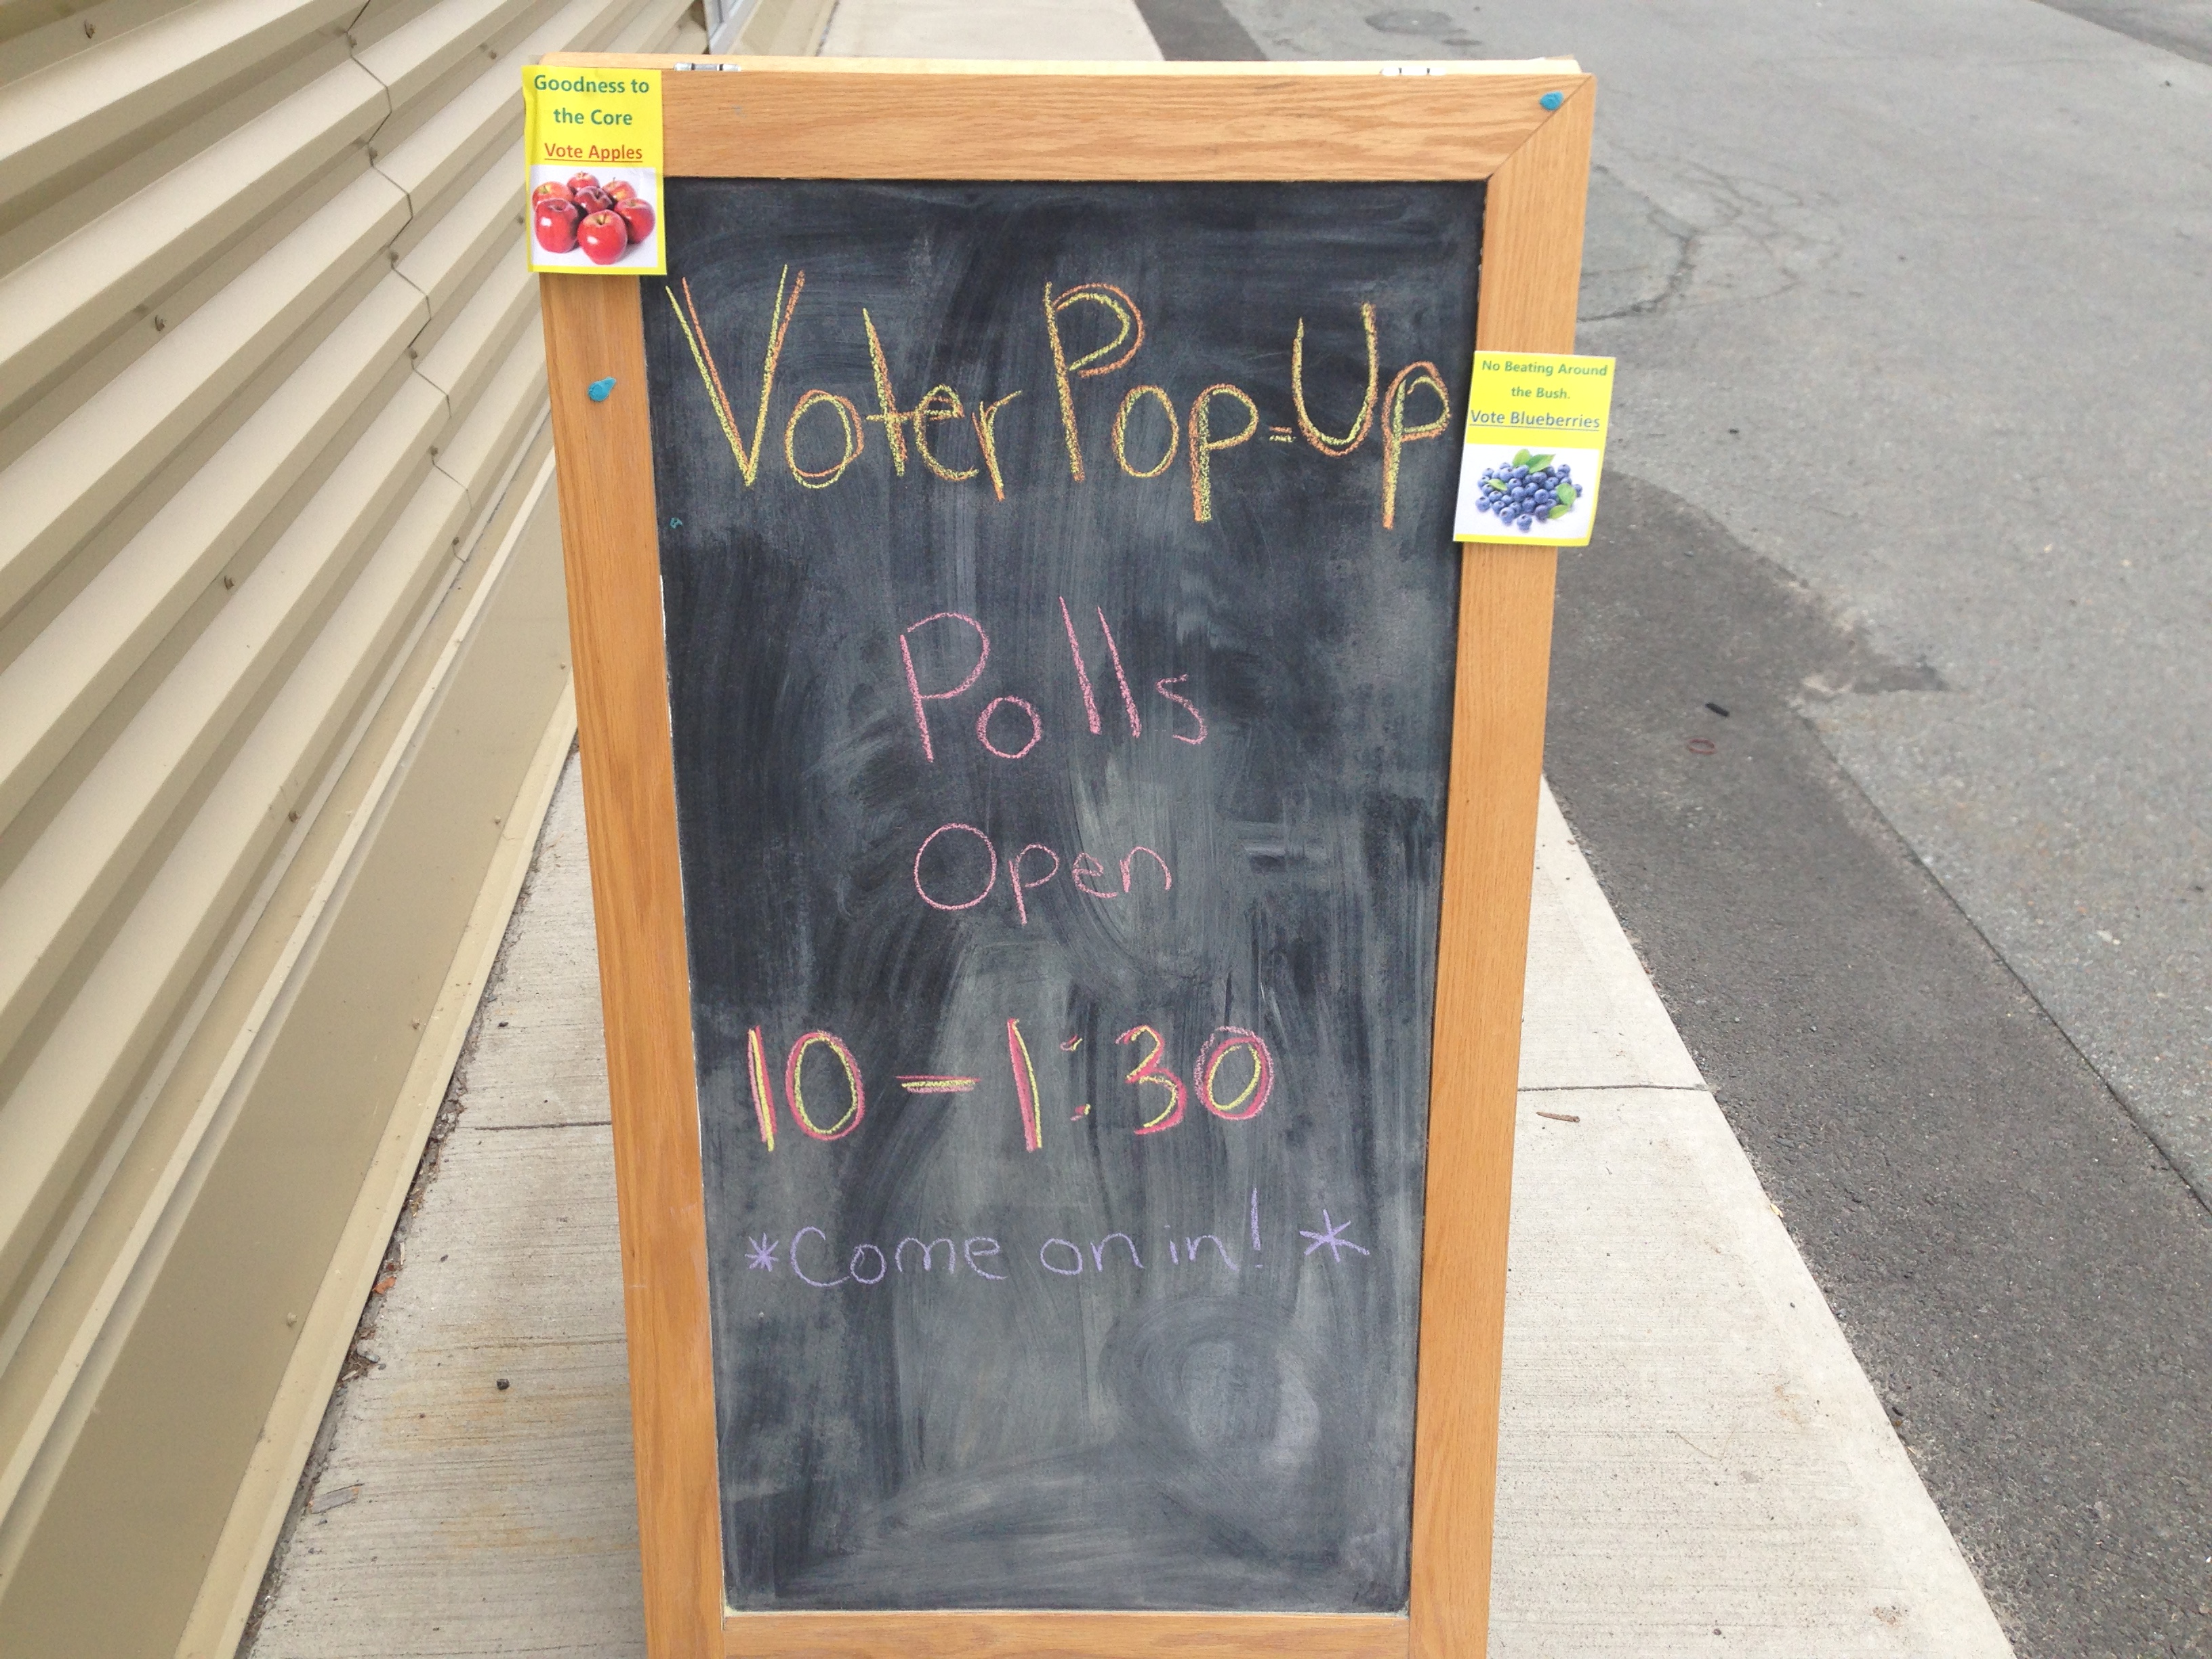 Goodness to
the Core
Vote Apples
Voter Pop-Up
No Beating Around
the Bush.
Vote Blueberries
Polls
Open
10-1:30
*Come on in! *